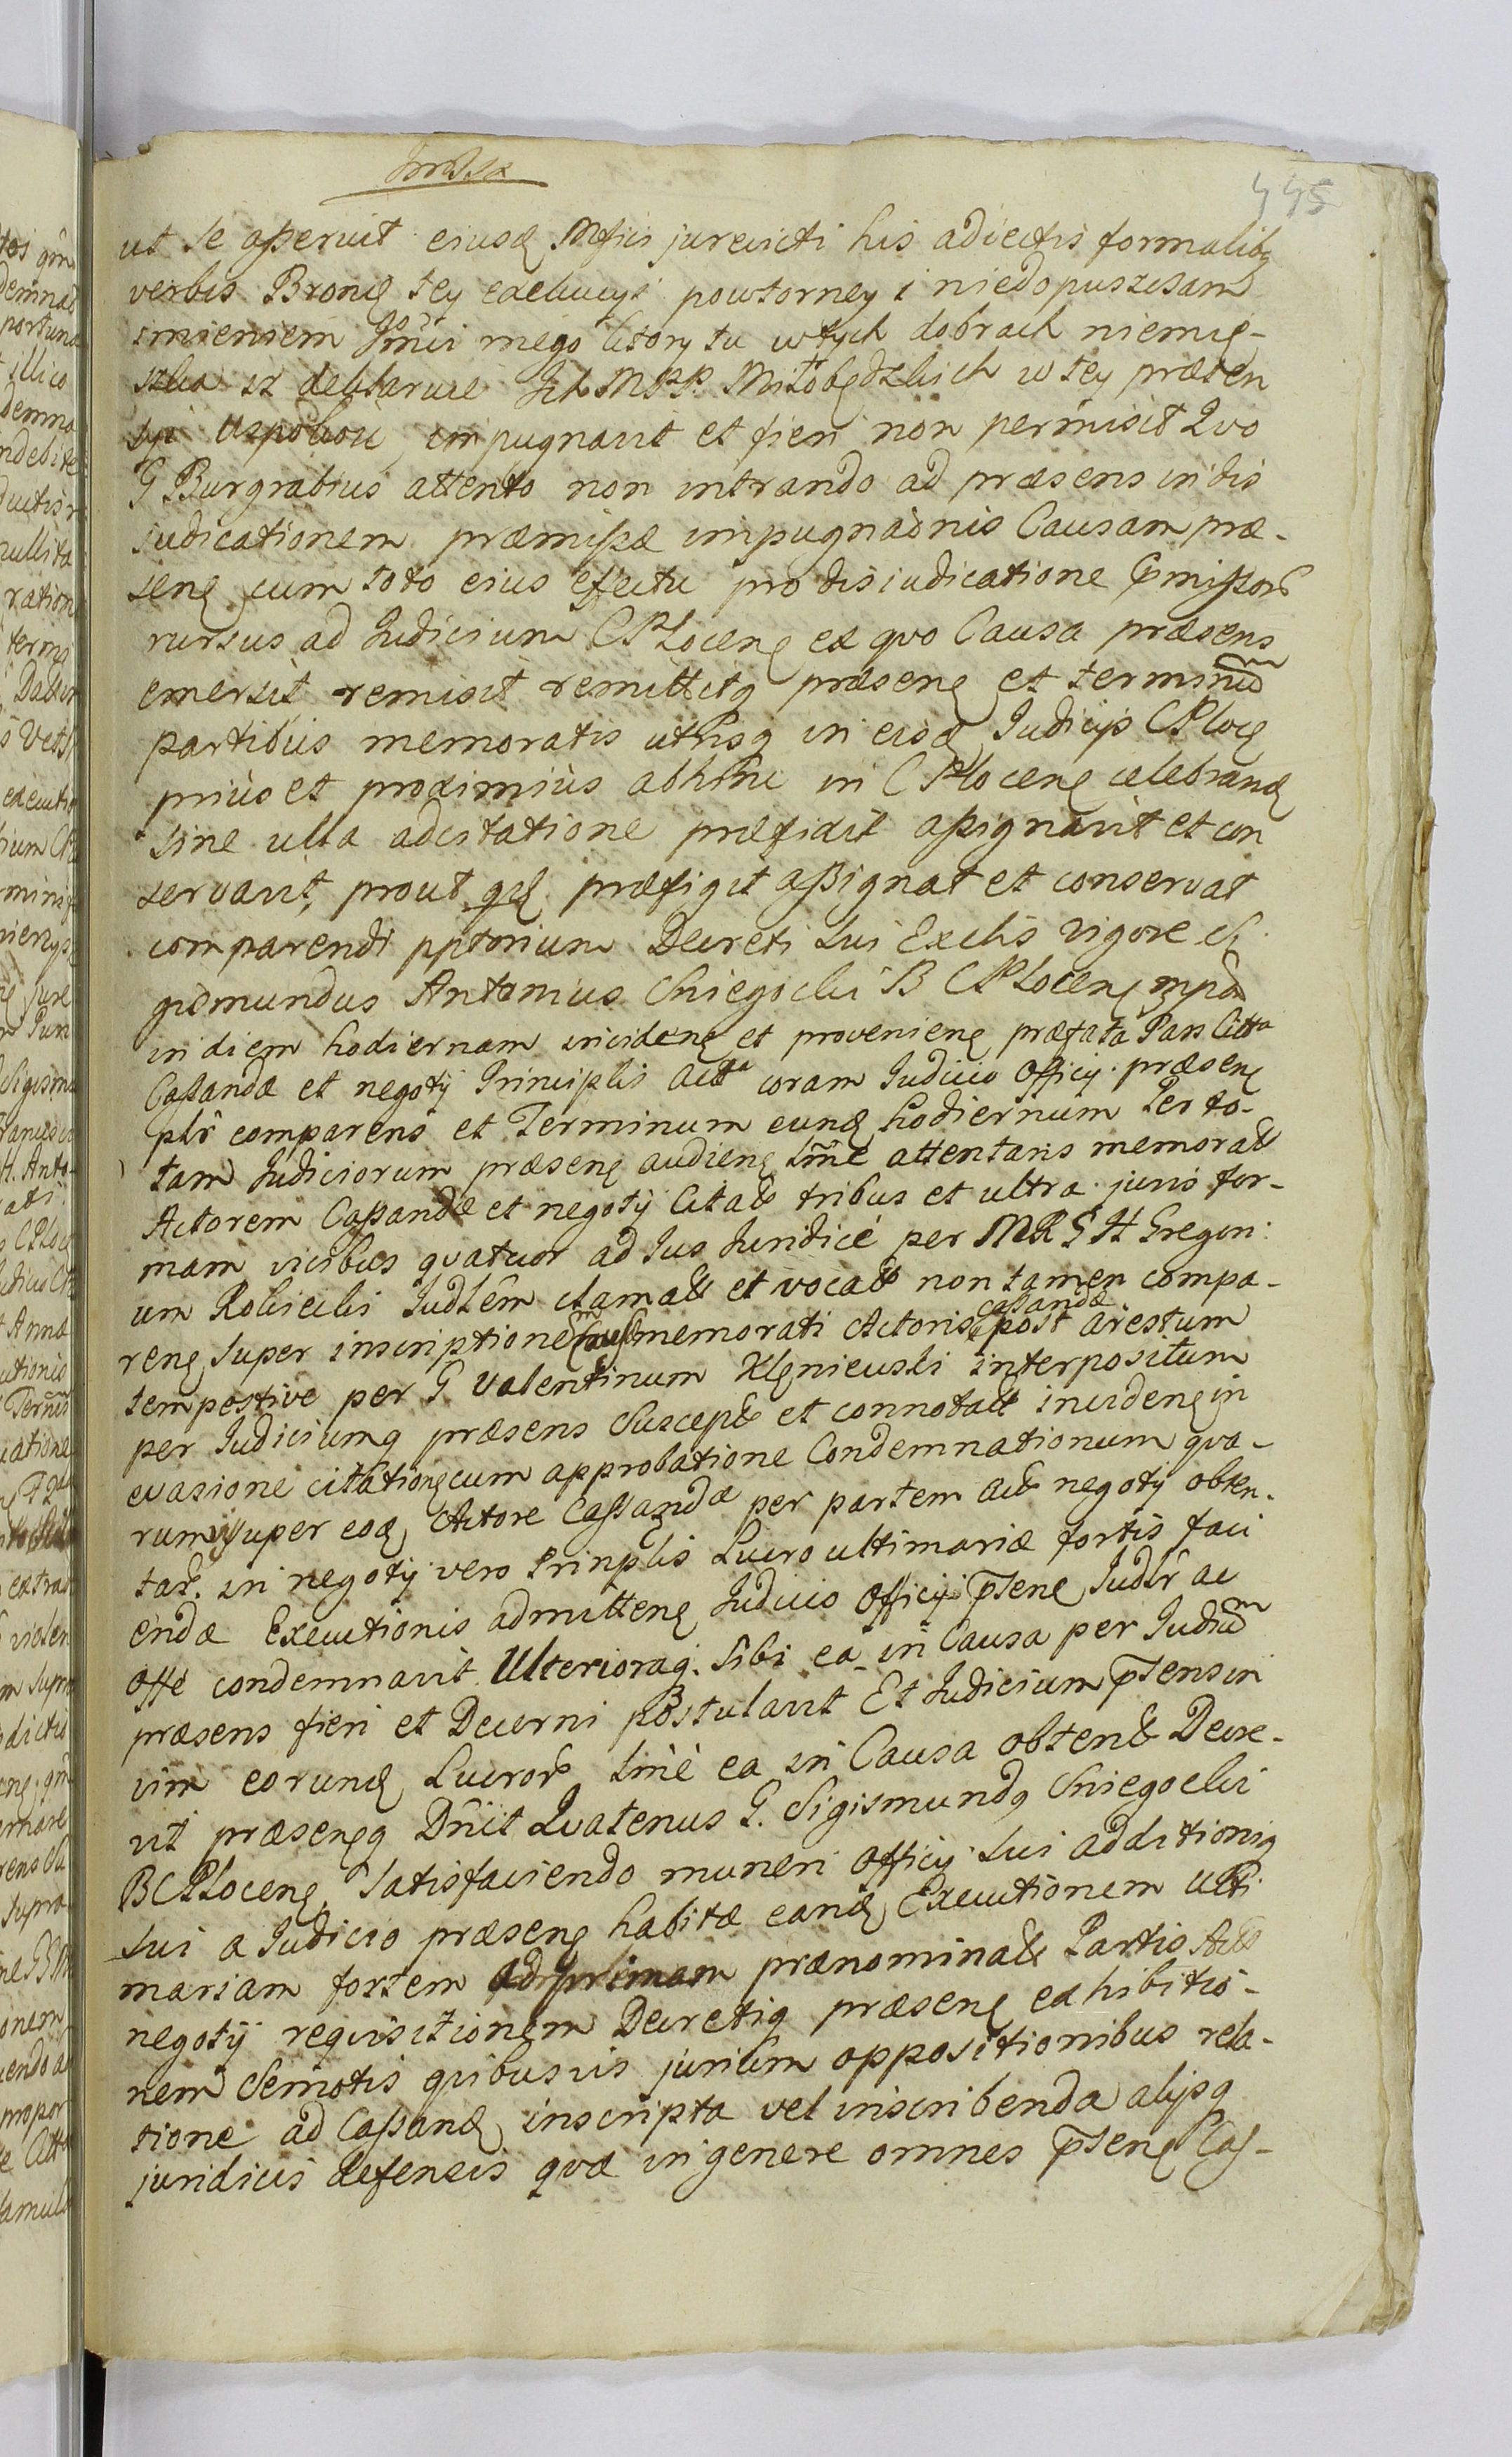 445
ut se asseruit eiusd Mfici jurevicti his adiectis formalibq
verbis Bronię tey exekucyi powtorney i niedopuszczam
imieniem Jmci mego ktory tu wtych dobrach niemię-
szka iz deklaruie Ich MPP. Miłobędzkich w tey præten
syi Uspokoic, impugnavit et fieri non permisit Quo
G Burgrabius attento non intrando ad præsens in dis
iudicationem præmissæ impugnaonis Causam præ-
sene cum toto eius effectu pro disiudicatione pmissor
rursus ad Iudicium CPlocene ex qvo Causa præsens
emersit remisit remittitq præsene et terminum
partibus memoratis utrisq in eisd Iudicijs CPloce
prius et proximius abhinc in CPlocene celebrand
sine ulla adcitatione præfixit assignavit et con
servavit, prout qd præfigit assignat et conservat
comparendi pptorium Decreti sui Exctis vigore Si
gismundus Antonius Sniegocki B CPlocene mpa
in diem hodiernam incidene et proveniene præfata Pars Citta
Cassandæ et negotij Principlis Acta coram Iudicio Officij præsene
plr comparens et Terminum eund hodiernum Per to-
tam Iudiciorum præsene audiene lme attentans memorat
Actorem Cassandæ et negotij Citat tribus et ultra juris for-
mam vicibus qvatuor ad Ius Iuridice per MRSH Gregori
um Rokicki Iudlem clamat et vocat non tamen compa-
rene super inscriptionem memorati Actoris cassandæ post arestum
tempestive per G Valentinum Klęniewski interpositum
per Iudiciumq præsens Suscept et connotatt incidene in
evasione citatione cum approbatione Condemnationum qva-
rumvis super eod Actore Cassandæ per partem Act negotij obten-
tar. in negotij vero Prinplis Lucro ultimariæ fortis faci
endæ Executionis admittene Iudicio Officij psene Iudlr ac
Offe condemnavit Ulterioraq. Sibi ea in Causa per Iudium
præsens fieri et Decerni postulavit Et Iudicium psens in
vim eorund Lucror lme ea in Causa obtent Decre-
vit præseneq Dnit Qvatenus G. Sigismundq Sniegocki
BCPlocene satisfaciendo muneri Officij sui additioniq
sui a Iudicio præsene habitæ eand Executionem ulti
mariam fortem ad primam prænominat Partis Act
negotij reqvisitionem Decretiq præsene exhibitio-
nem Semotis qvibusvis jurium oppositionibus rela-
tione ad Cassand inscripta vel inscribenda alijsq
juridicis defensis qvæ in genere omnes psene Cas-